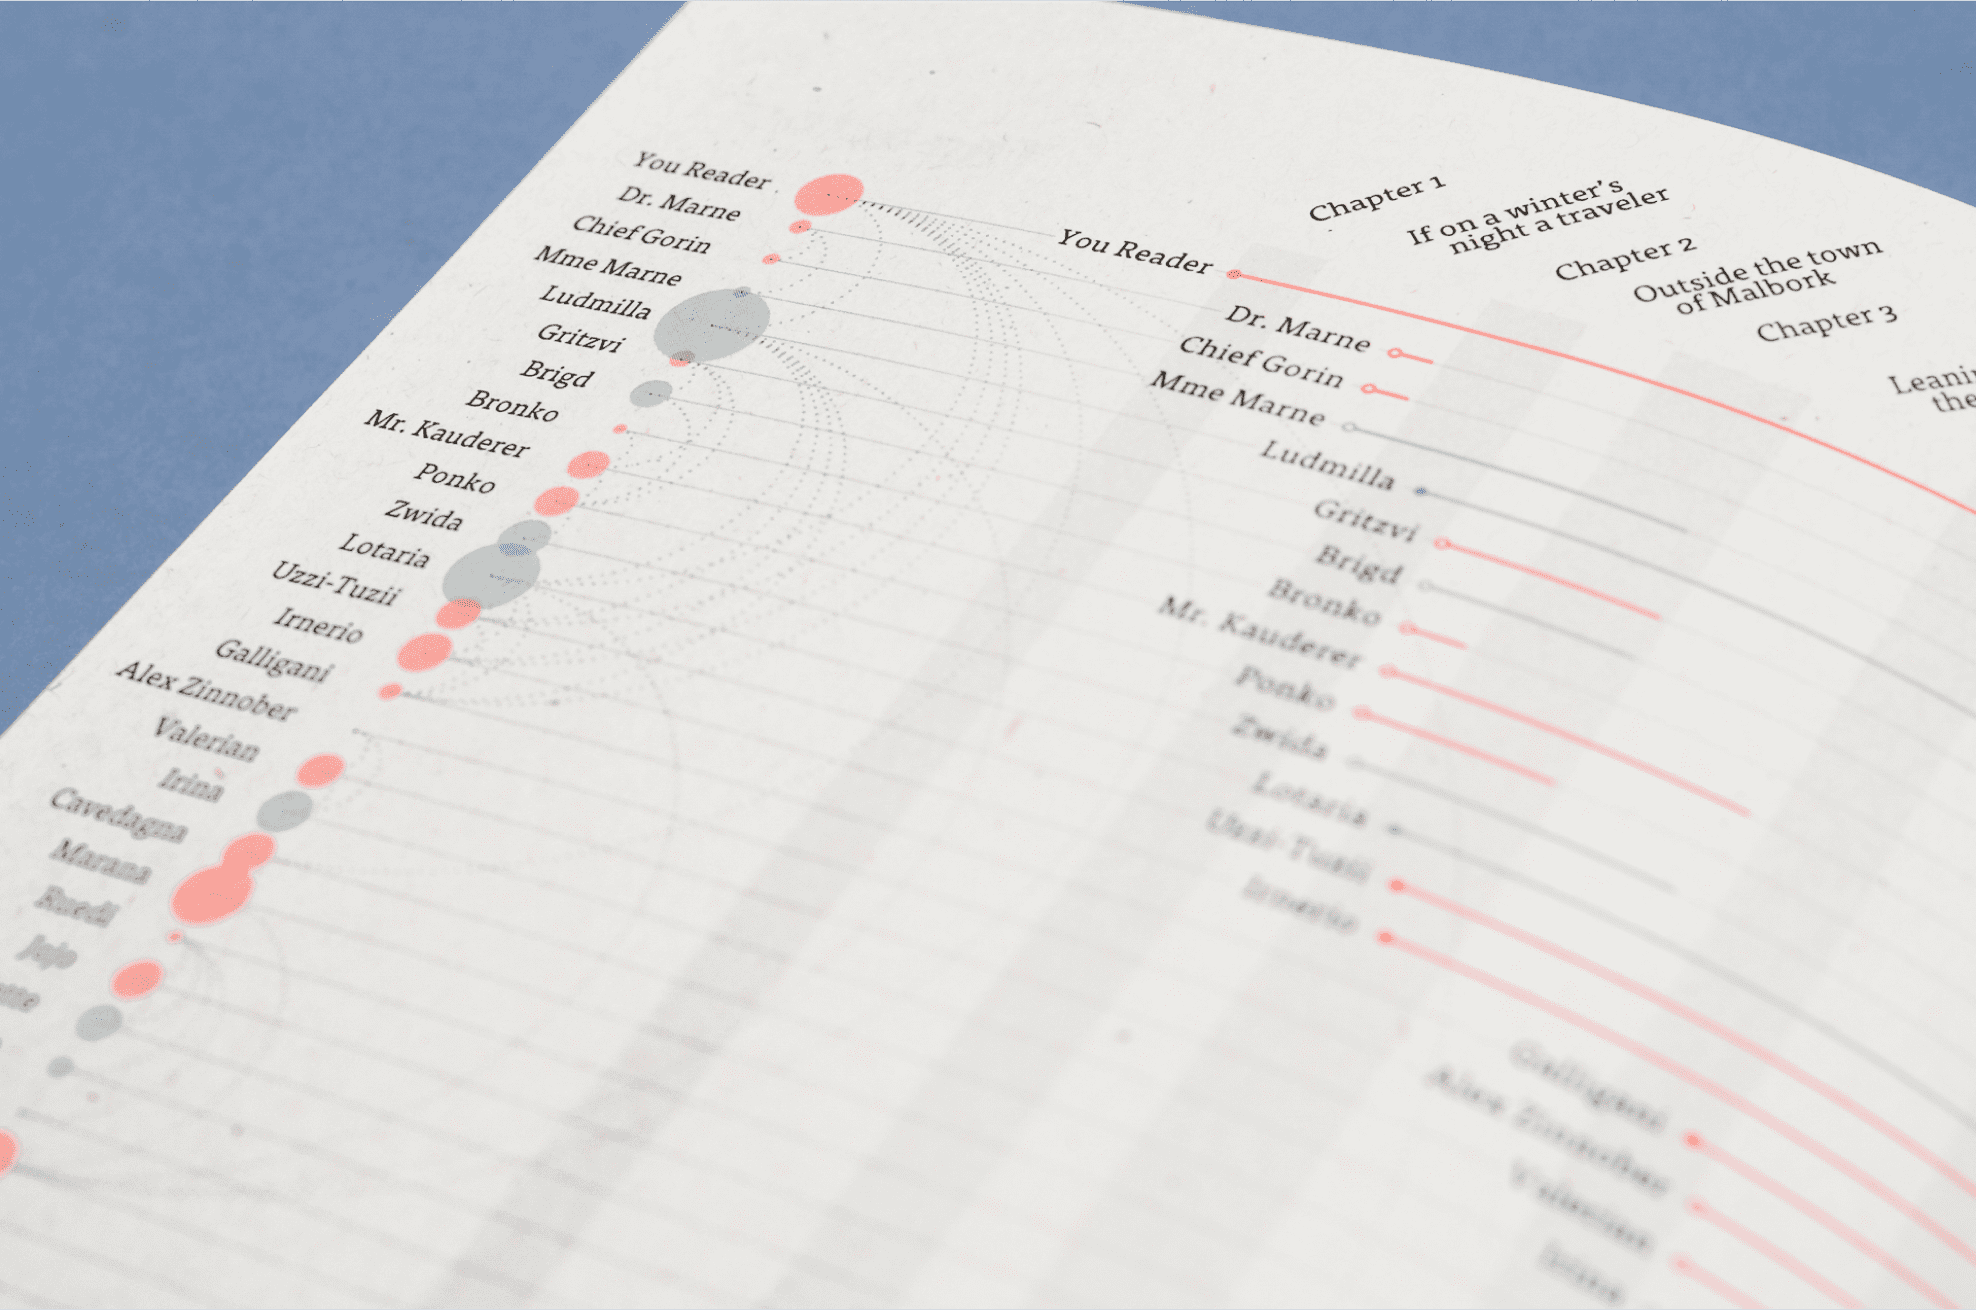 You Reader
Dr. Marne
Chief Gorin
Mme Marne
Ludmilla
Gritzvi
Brigd
Bronko
Mr. Kauderer
Ponko
Zwida
Lotaria
Uzzi-Tuzii
Irnerio
Galligani
Alex Zinnober
Valerian
Irina
Cavedagna
Marana
Ruedi
Jojo
Chapter 1
If on a winter's
night a traveler
Chapter 2
Outside the town
of Malbork
Chapter 3
the
You Reader
Dr. Marne
Chief Gorin
Mme Marne
Ludmilla
Gritzvi
Brigd
Bronko
Mr. Kauderer
Ponko
Zwida
Lotaria
Uzzi-Tuzii
Irnerio
Galligani
Alex Zinnober
Valerian
Irina